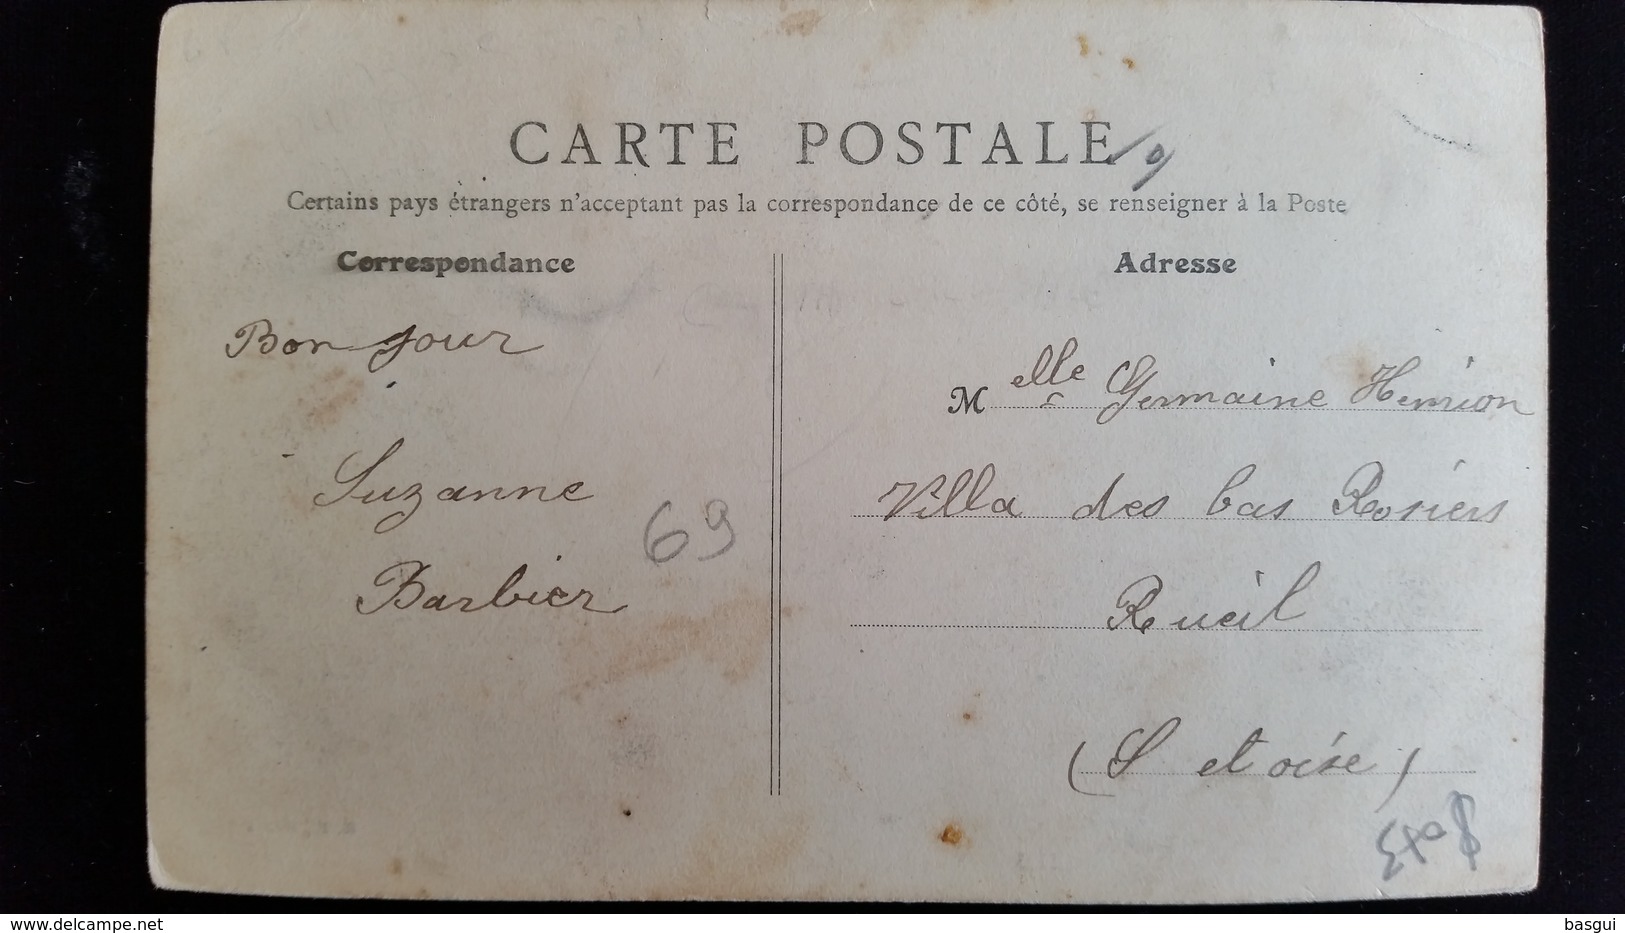 CARTE POSTALE
Certains pays étrangers n'acceptant pas la correspondance de ce côté, se renseigner à la Poste
Correspondance
Bonjour
Suzanne
69
Barbier
Adresse
Melle Germaine Henrion
Villa des bas Rosiers
Rueil
(S et oise)
delcampe.net
basgui